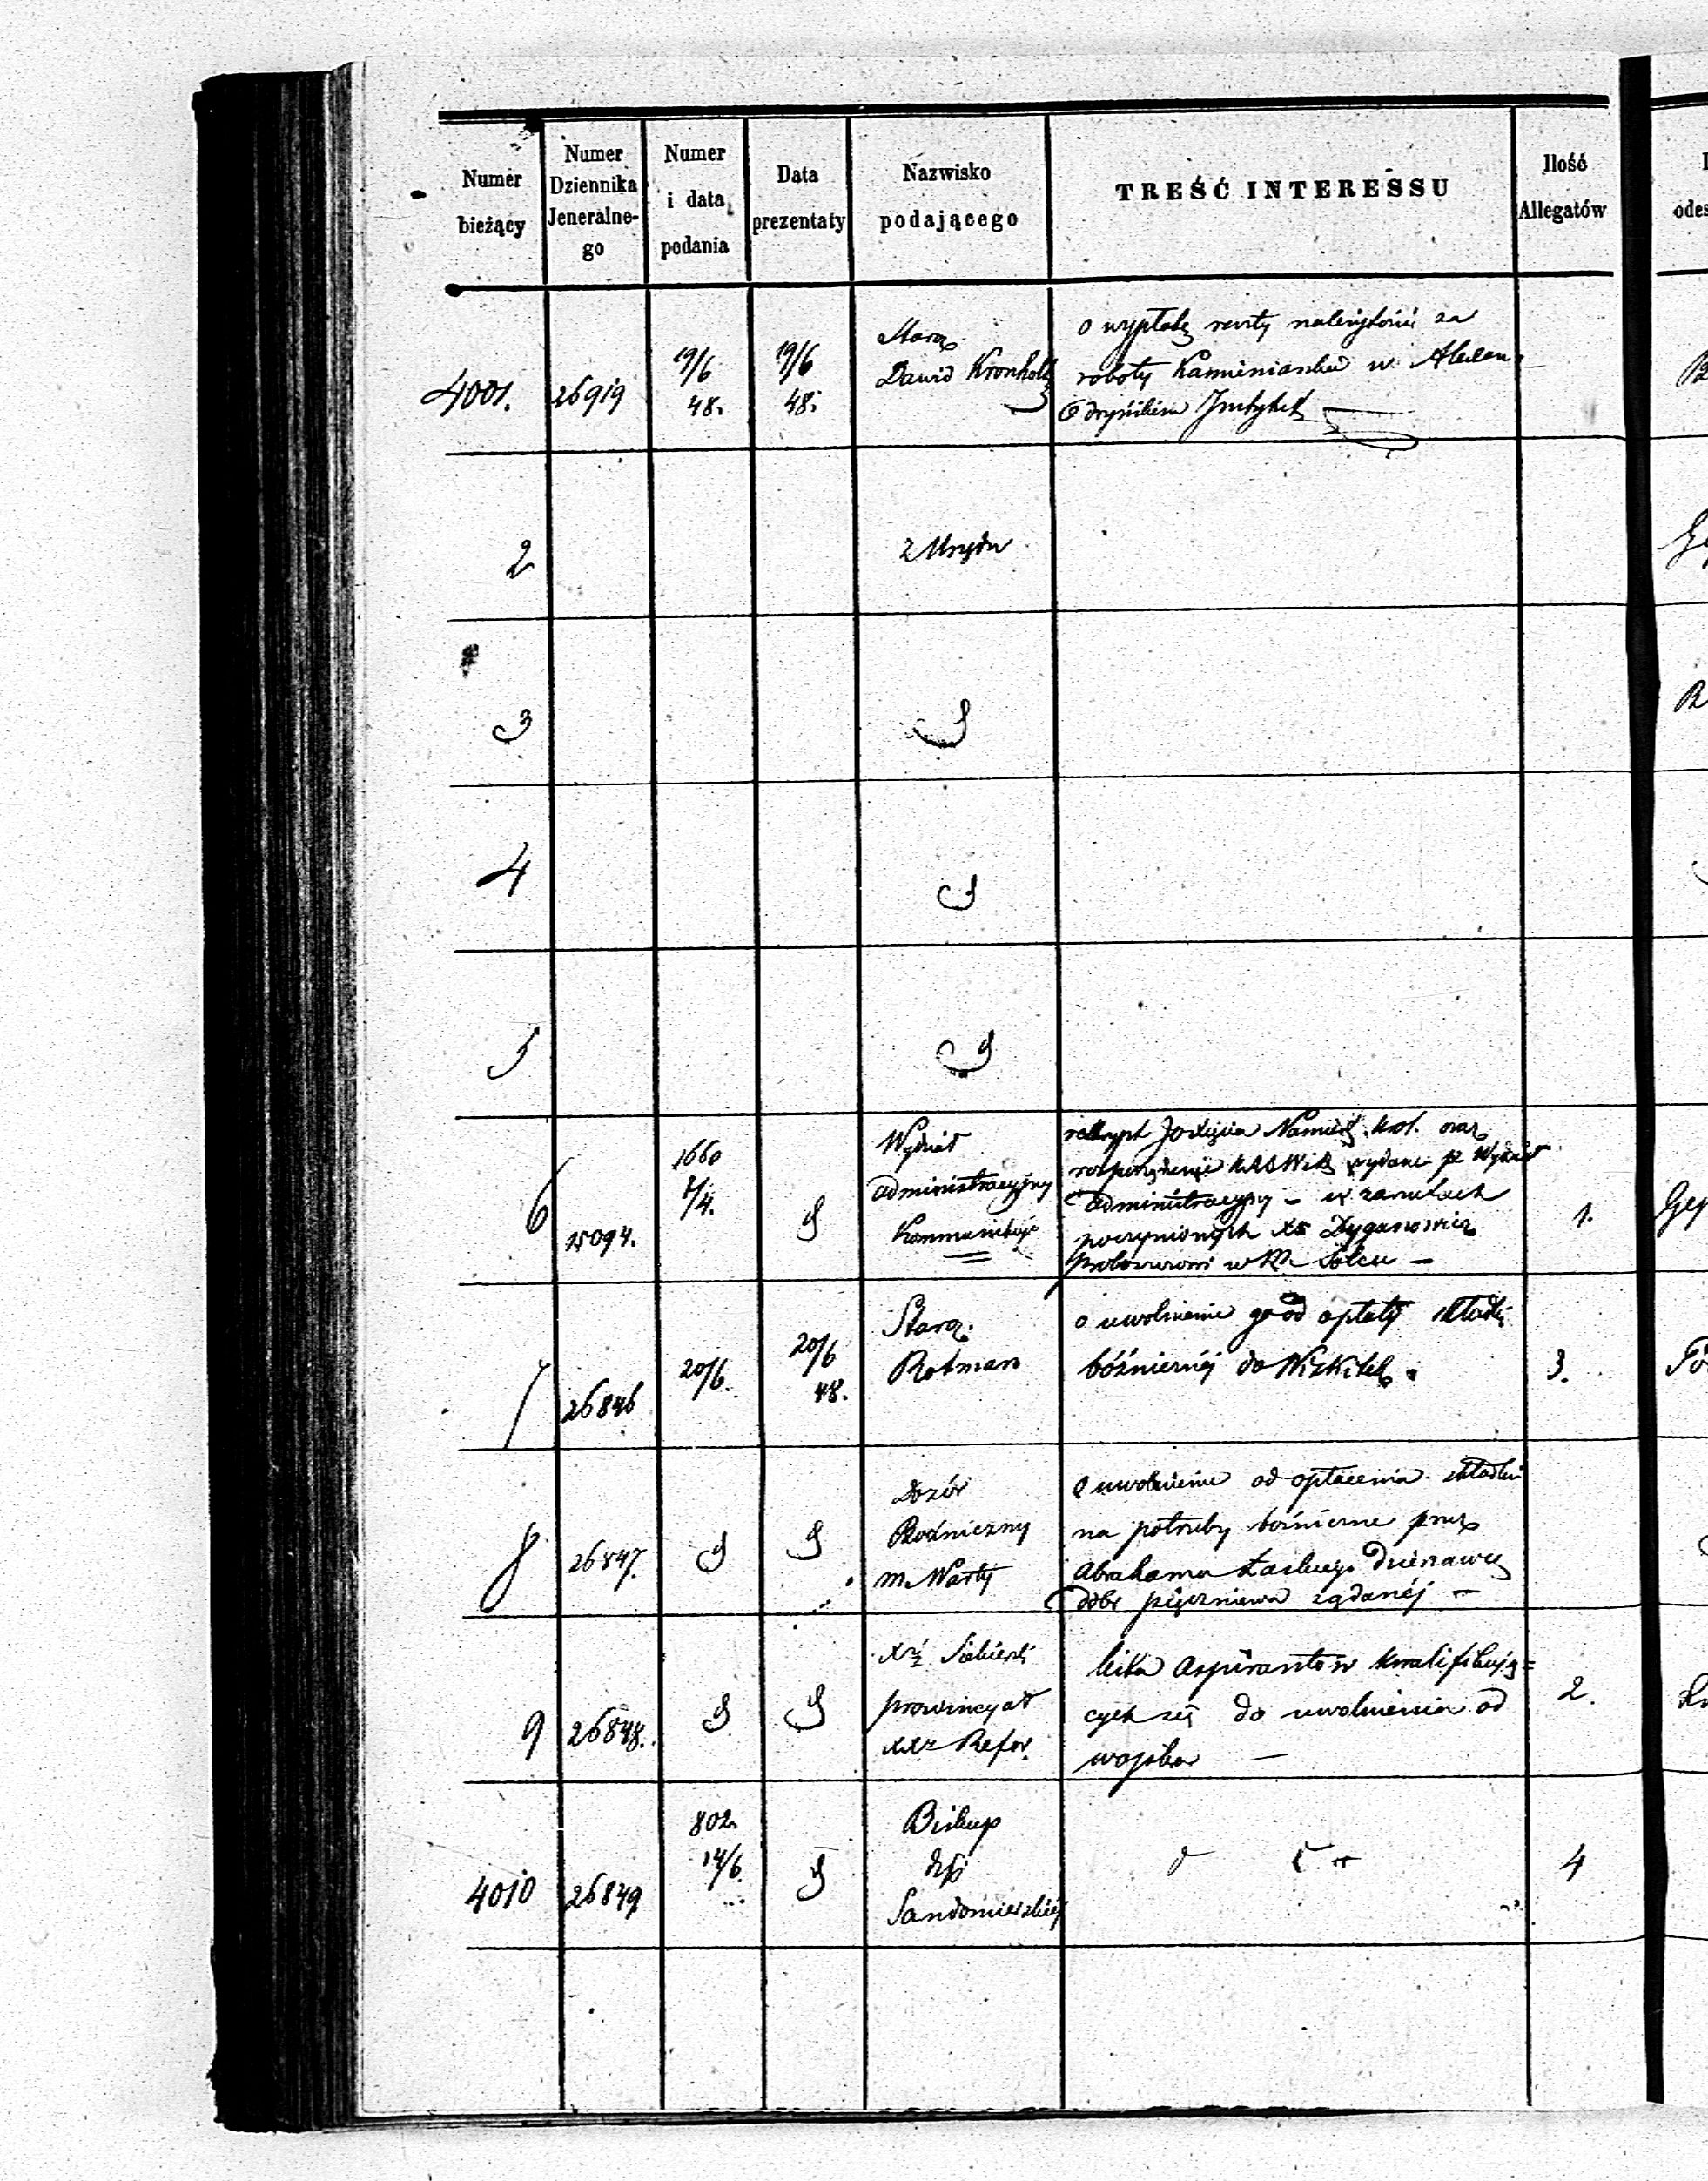 Numer bieżący
Numer Dziennika Jeneralne-go
Numer i data podania
Data prezentaty
Nazwisko podającego
TREŚĆ INTERESSU
Ilość Allegatów
4001. 26919 19/6 48. 19/6 48.
Staroz.
Dawid Kronholz
o wypłatę reszty należytości za
roboty Kamieniarskie w Alexan=
dryńskim Instytut
2 z Urzędu
3
4
5
6 15094. 1660 7/4.
Wydział
administracyjny
Kommunikuje
reskrypt Xięcia Namiest. Król. oraz
rozporządzenie wydane pr Wydział
administracyjny – w zarzutach
poczynionych Xs Dyganowicz
Proboszczowi w M. Solcu –
1.
7 26846 20/6. 20/6 48.
Staroz.
Rotman
o uwolnienie go od opłaty składki
bóźnicznéj do Wiskitek.
3.
8 26847.
Dozór
Bożniczny
m. Warty
o uwolnienie od opłacenia składki
na potrzeby bożnicze przez
Abrahama Łaskiego Dzierzawcę
dóbr pięczniewa żądanéj –
9 26848.
prowincyał
xxz Refor.
lista Aspirantów kwalifikują=
cych się do uwolnienia od
wojska –
2.
4010 26849 802. 14/6.
Biskup
Sandomierskiéj
4